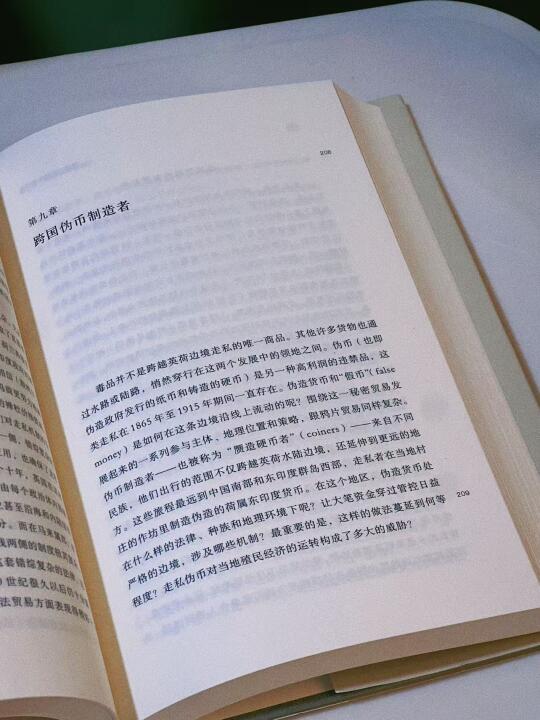 208
第九章
跨国伪币制造者
毒品并不是跨越英荷边境走私的唯一商品。其他许多货物也通
过水路或陆路，悄然穿行在这两个发展中的领地之间。伪币（也即
伪造政府发行的纸币和铸造的硬币）是另一种高利润的违禁品，这
类走私在1865年至1915年期间一直存在。伪造货币和“假币”（false
money）是如何在这条边境沿线上流动的呢？围绕这一秘密贸易发
展起来的一系列参与主体、地理位置和策略，跟鸦片贸易同样复杂。
伪币制造者——也被称为“赝造硬币者”（coiners）——来自不同
民族，他们出行的范围不仅跨越英荷水陆边境，还延伸到更远的地
方。这些旅程最远到中国南部和东印度群岛西部，走私者在当地村
庄的作坊里制造伪造的荷属东印度货币。在这个地区，伪造货币处
在什么样的法律、种族和地理环境下呢？让大笔资金穿过管控日益
严格的边境，涉及哪些机制？最重要的是，这样的做法蔓延到何等
程度？走私伪币对当地殖民经济的运转构成了多大的威胁？
209